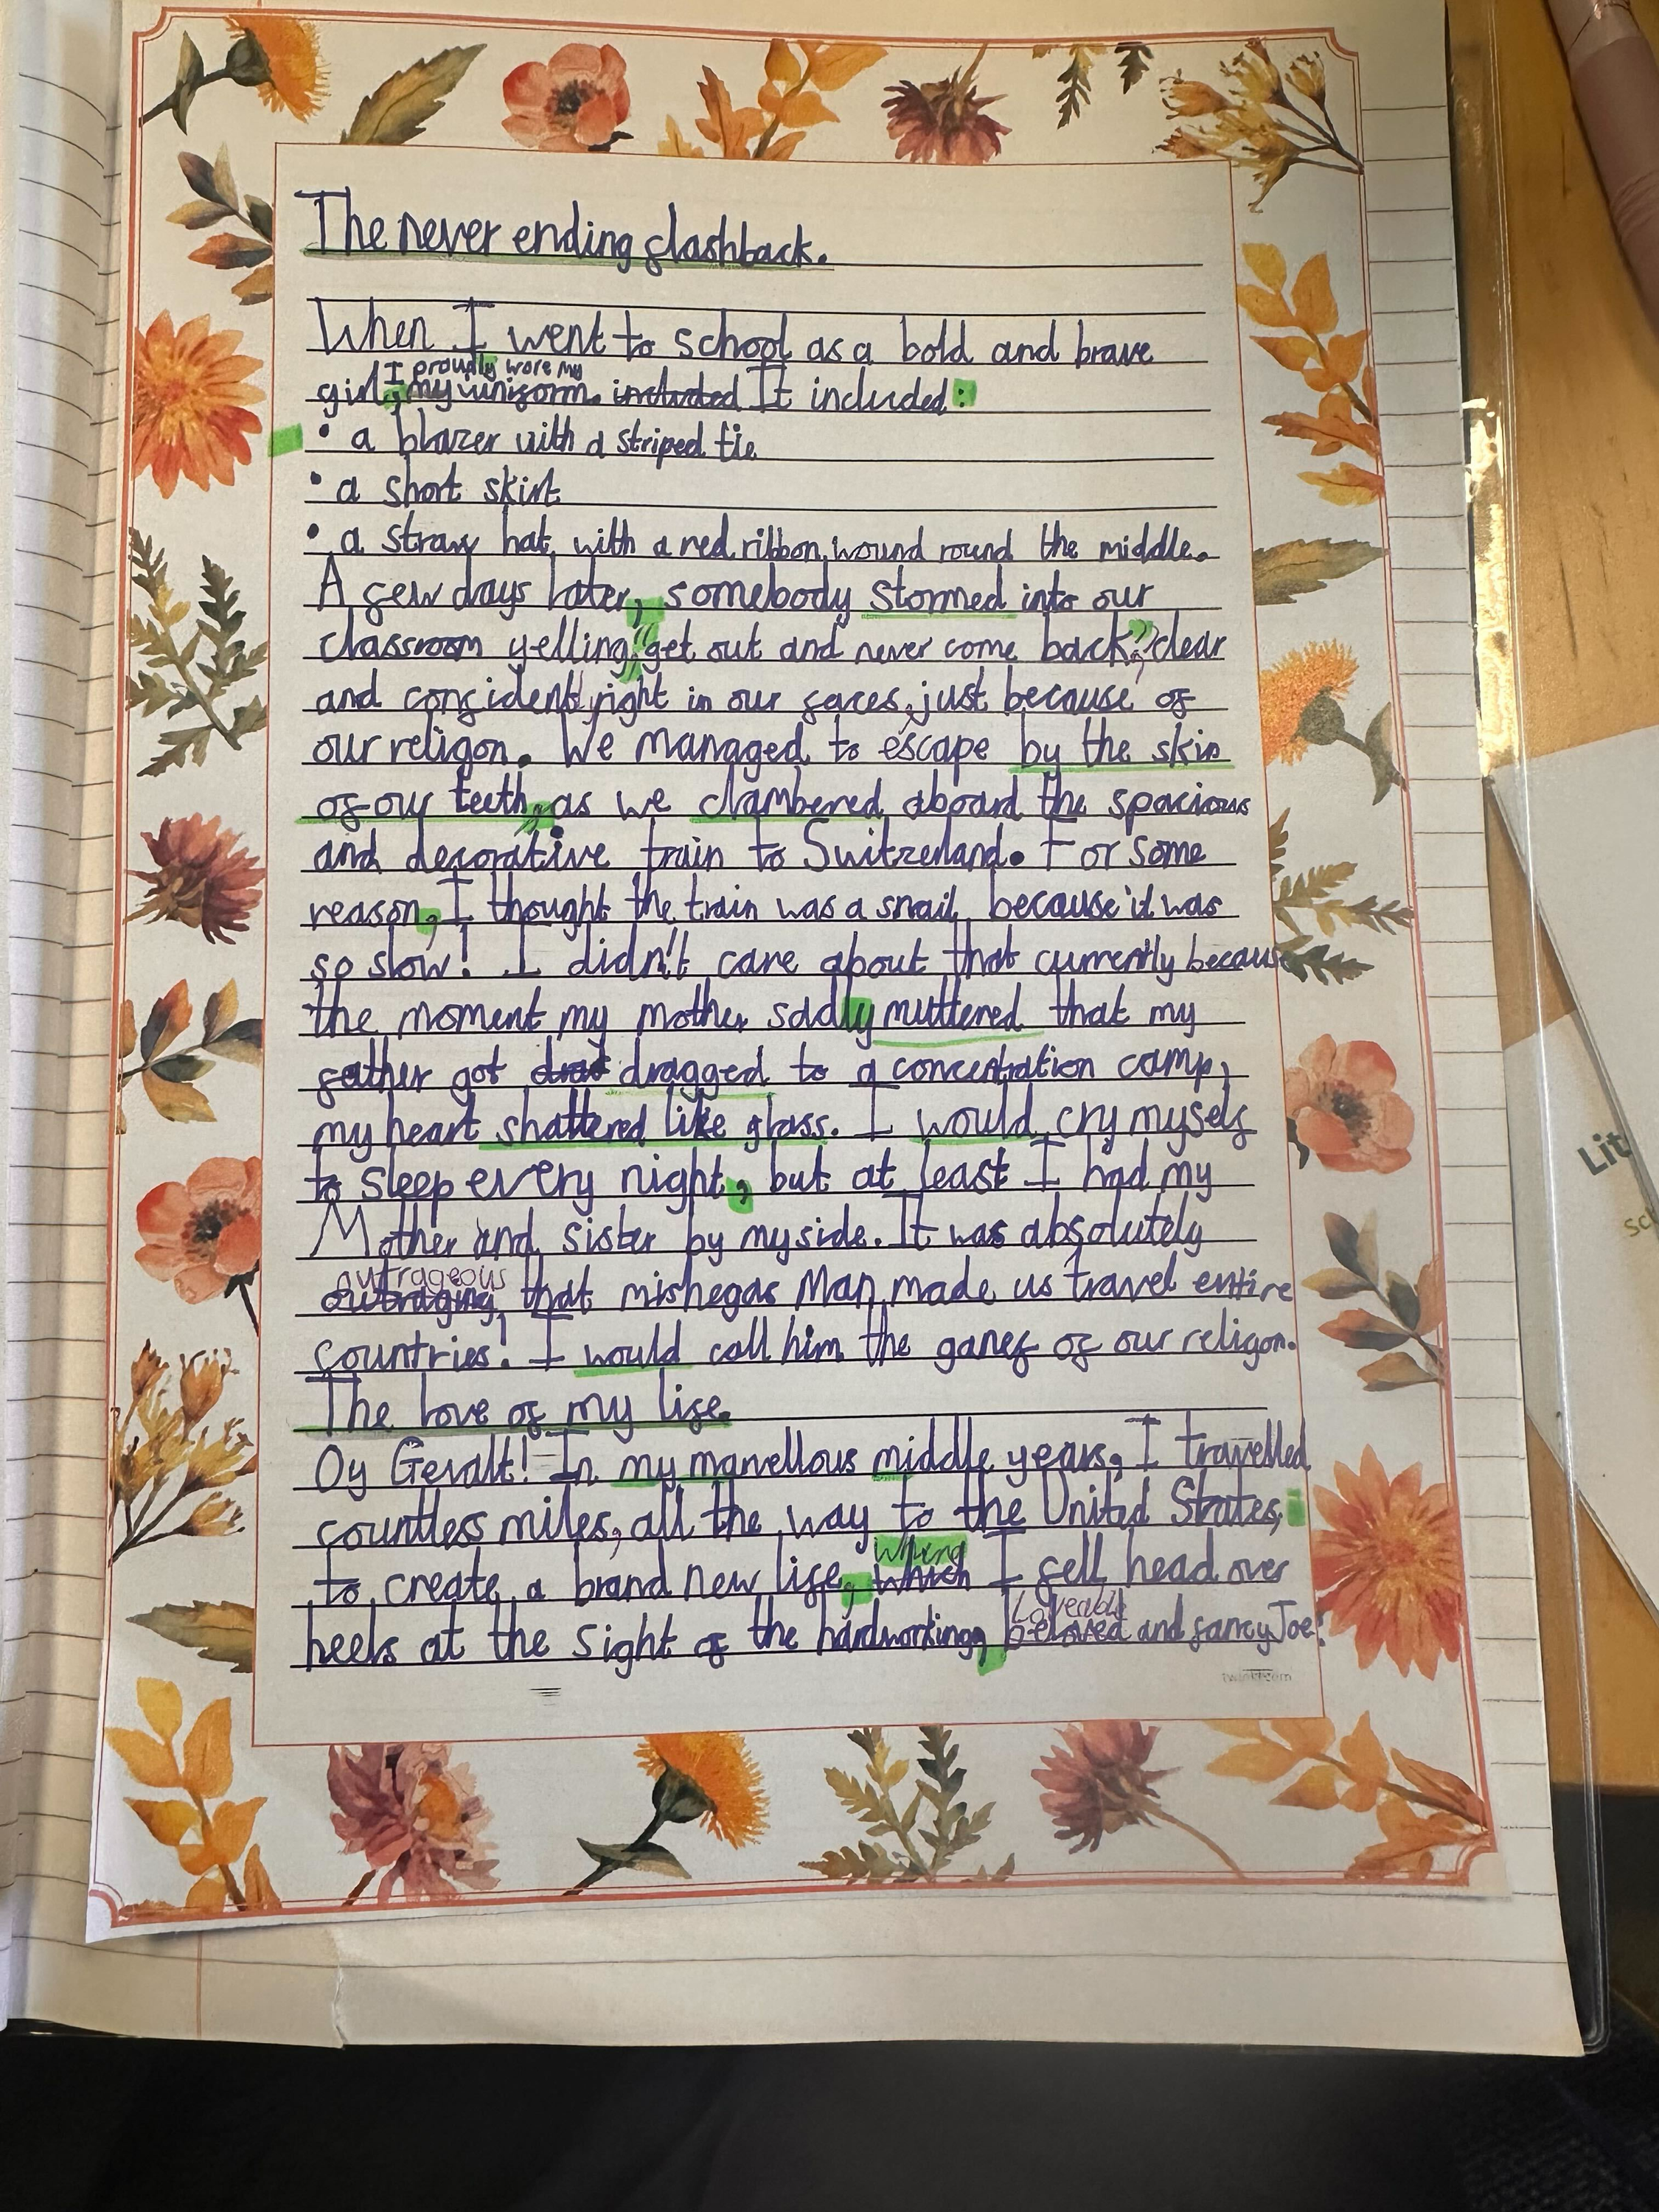 The never ending flashback.
When I went to school as a bold and brave
I proudly wore my
girl, my uniform. included It included:
• a blazer with a striped tie
• a short skirt
• a straw hat with a red ribbon wound round the middle.
A few days later, somebody stormed into our
classroom yelling, "get out and never come back", clear
and confident, right in our faces, just because of
our religon. We managed to escape by the skin
of our teeth, as we clambered aboard the spacious
and decorative train to Switzerland. For some
reason, I thought the train was a snail, because it was
so slow! I didn't care about that currently because
the moment my mother sadly muttered that my
father got dragged to a concentration camp,
my heart shattered like glass. I would cry myself
to sleep every night, but at least I had my
Mother and sister by my side. It was absolutely
outrageous
outraging that mishegas Man made us travel entire
countries! I would call him the ganef of our religon.
The love of my life.
Oy Gevalt! In my marvellous middle years, I travelled
countless miles, all the way to the United States,
to create a brand new life, which I fell head over
Loveable
heels at the sight of the hardworking, beloved and fancy Joe!
twinkl.com
Lit
sc